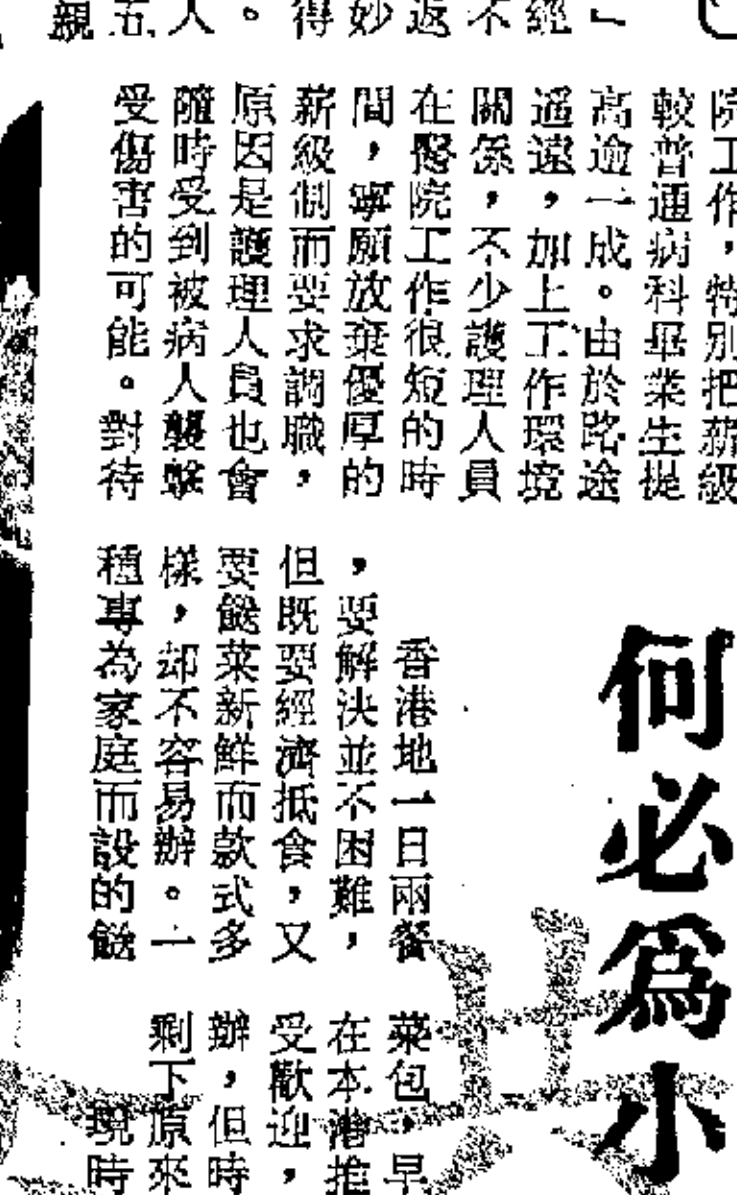 經
不
返
妙
得
。
人
五
親
院工作，特別把薪級
較普通病科畢業生提
高逾一成。由於路途
遥遠，加上工作環境
關係，不少護理人員
在醫院工作很短的時
間，寧願放棄優厚的
薪級制而要求調職，
原因是護理人員也會
隨時受到被病人襲擊
受傷害的可能。對待
何必爲小
香港地一日兩餐
，要解決並不困難，
但既要經濟抵食，又
要餸菜新鮮而款式多
樣，却不容易辦。一
種專為家庭而設的餸
菜包，早
在本港推
受歡迎，
辦，但時
剩下原來
現時